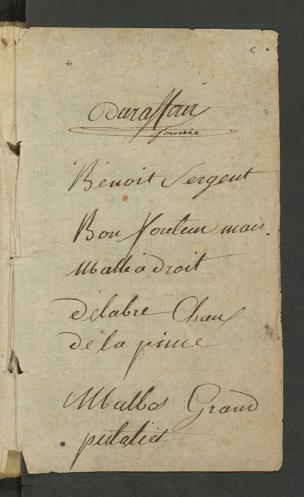 c
Duraffour
Benoit Sergent
Bon fouteur mais
Malladroit
Délabre Chaus
de la pine
Malbos Grand
putatiet